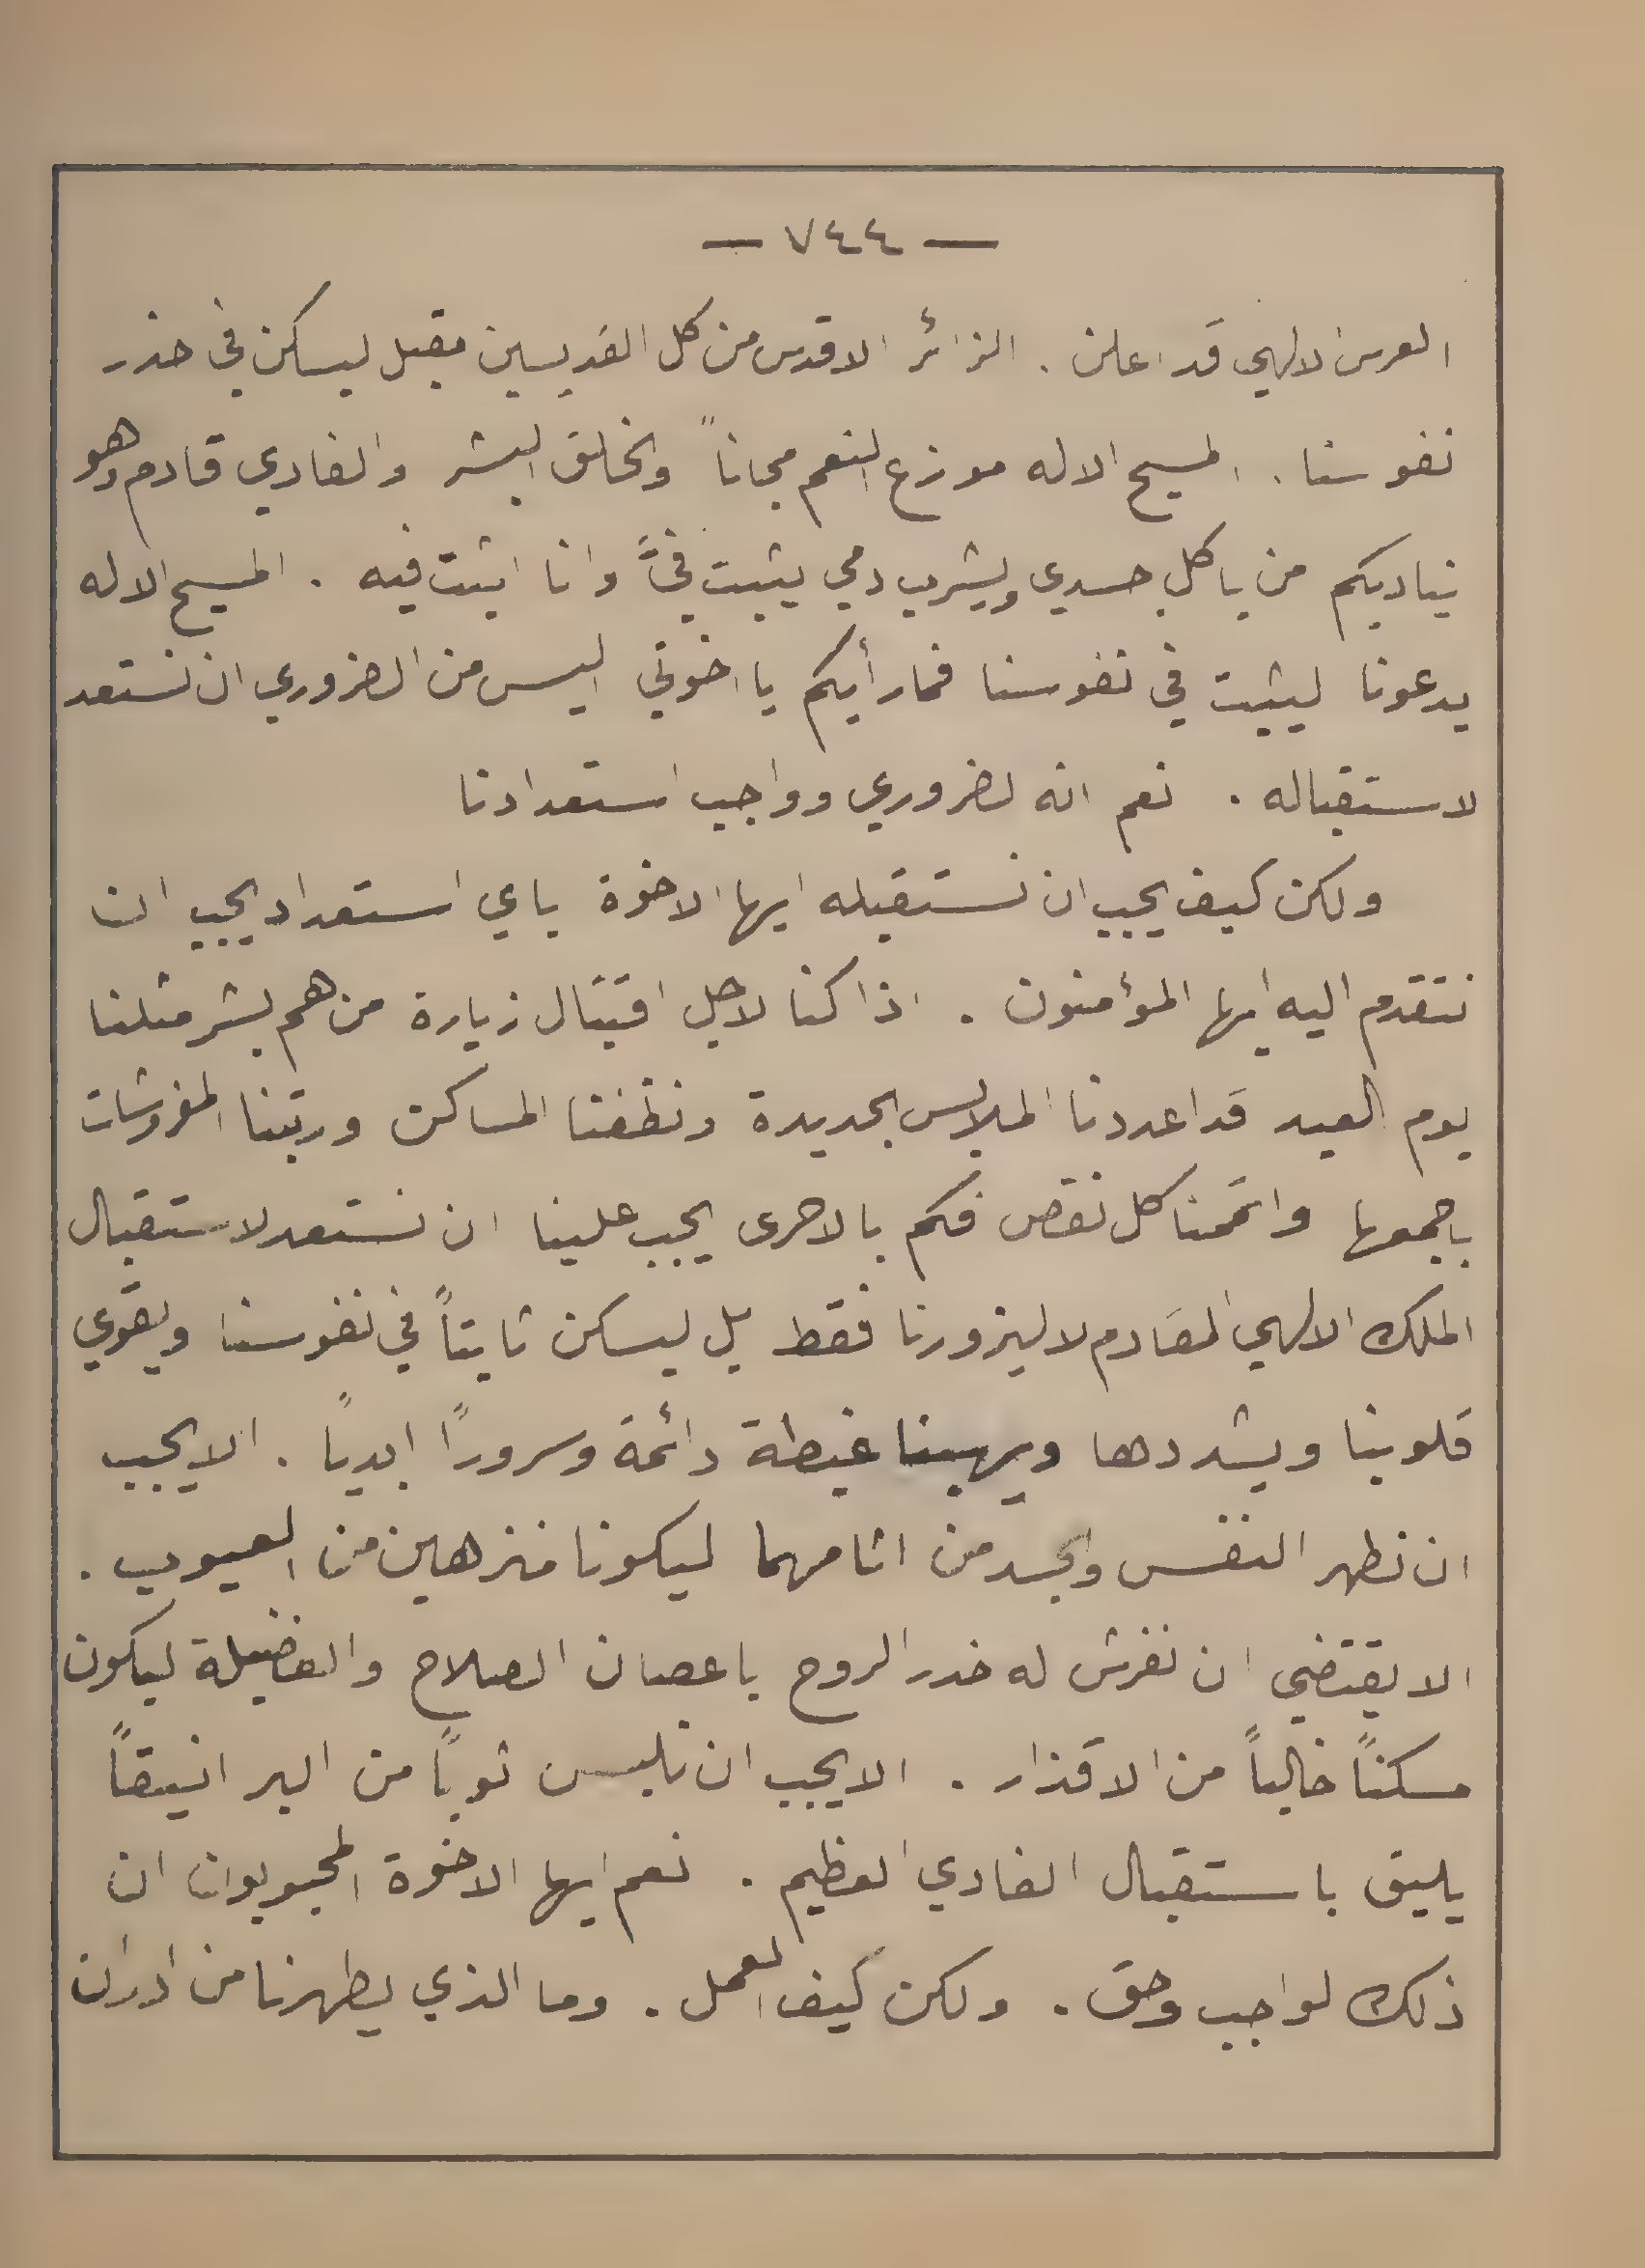 — ٧٤٤ —
العرس الالهي قد اعلن . الزائر الاقدس من كل القديسين مقبل ليسكن في خدر
نفوسنا . المسيح الاله موزع النعم مجاناً والخالق البشر والفادي قادم وهو
يناديكم من ياكل جسدي ويشرب دمي يثبت فيَّ وانا اثبت فيه . المسيح الاله
يدعونا ليثبت في نفوسنا فما رأيكم يا اخوتي اليس من الضروري ان نستعد
لاستقباله . نعم انه لضروري وواجب استعدادنا
ولكن كيف يجب ان نستقبله ايها الاخوة باي استعداد يجب ان
نتقدم اليه ايها المؤمنون . اذا كنا لاجل اقتبال زيارة من هم بشر مثلنا
يوم العيد قد اعددنا الملابس الجديدة ونظفنا المساكن ورتبنا المفروشات
باجمعها واتممنا كل نقص فكم بالاحرى يجب علينا ان نستعد لاستقبال
الملك الالهي القادم لا ليزورنا فقط بل ليسكن ثابتاً في نفوسنا ويقوّي
قلوبنا ويشددها ويهبنا غبطة دائمة وسروراً ابدياً . الا يجب
ان نطهر النفس والجسد من اثامهما ليكونا منزهين من العيوب .
الا يقتضي ان نفرش له خدر الروح باغصان الصلاح والفضيلة ليكون
مسكناً خالياً من الاقذار . الا يجب ان نلبس ثوباً من البر انيقاً
يليق باستقبال الفادي العظيم . نعم ايها الاخوة المحبوبون ان
ذلك لواجب وحق . ولكن كيف العمل . وما الذي يطهرنا من ادران